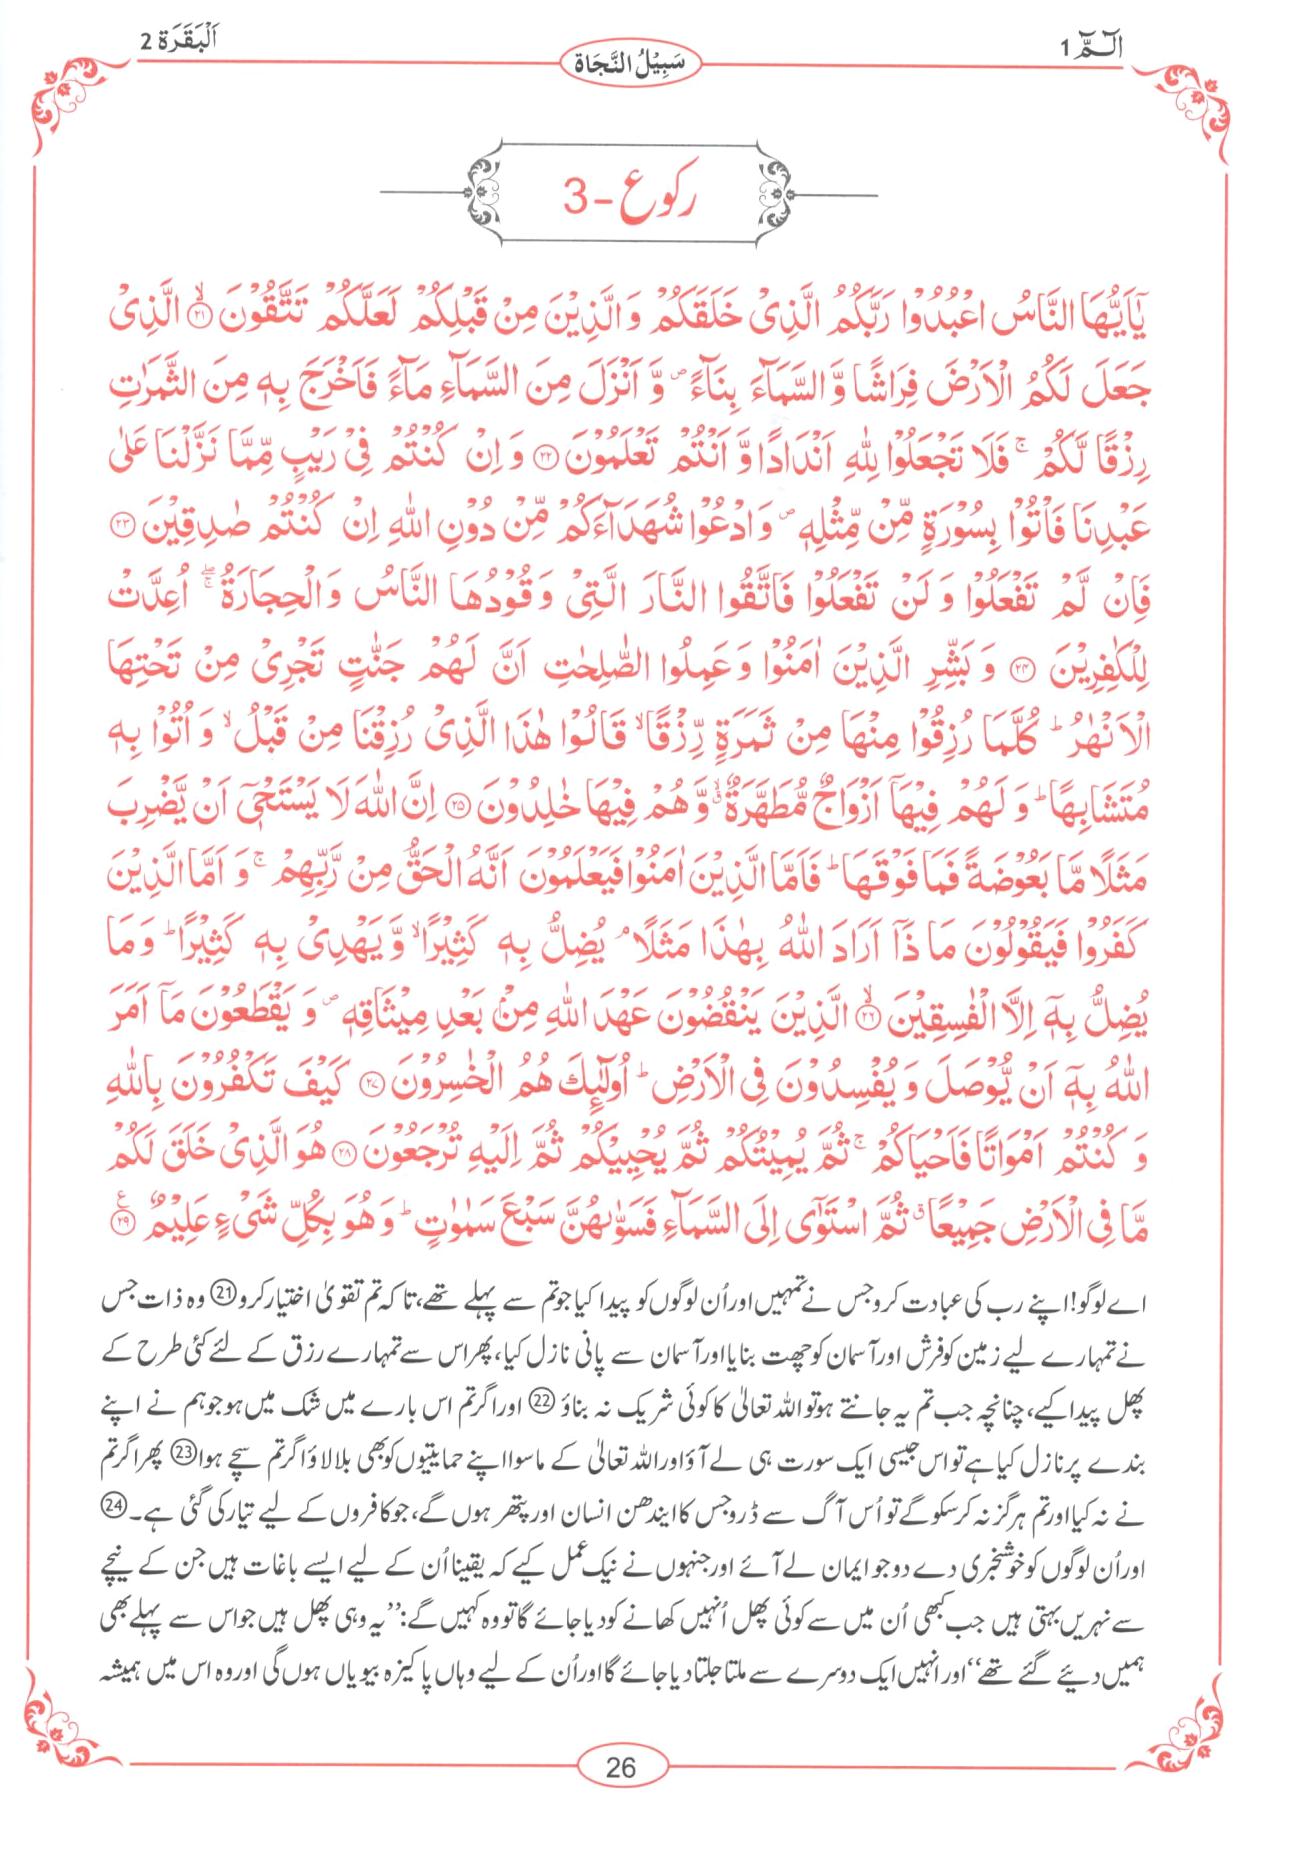 الٓمّٓ 1
سَبِيْلُ النَّجَاة
اَلْبَقَرَة 2
رکوع -3
يٰۤاَيُّهَا النَّاسُ اعْبُدُوْا رَبَّكُمُ الَّذِىْ خَلَقَكُمْ وَالَّذِيْنَ مِنْ قَبْلِكُمْ لَعَلَّكُمْ تَتَّقُوْنَ ۙ﴿۲۱﴾ الَّذِىْ
جَعَلَ لَكُمُ الْاَرْضَ فِرَاشًا وَّ السَّمَآءَ بِنَآءً ۪ وَّ اَنْزَلَ مِنَ السَّمَآءِ مَآءً فَاَخْرَجَ بِهٖ مِنَ الثَّمَرٰتِ
رِزْقًا لَّكُمْ ۚ فَلَا تَجْعَلُوْا لِلّٰهِ اَنْدَادًا وَّ اَنْتُمْ تَعْلَمُوْنَ ﴿۲۲﴾ وَ اِنْ كُنْتُمْ فِىْ رَيْبٍ مِّمَّا نَزَّلْنَا عَلٰى
عَبْدِنَا فَاْتُوْا بِسُوْرَةٍ مِّنْ مِّثْلِهٖ ۪ وَ ادْعُوْا شُهَدَآءَكُمْ مِّنْ دُوْنِ اللّٰهِ اِنْ كُنْتُمْ صٰدِقِيْنَ ﴿۲۳﴾
فَاِنْ لَّمْ تَفْعَلُوْا وَ لَنْ تَفْعَلُوْا فَاتَّقُوا النَّارَ الَّتِىْ وَقُوْدُهَا النَّاسُ وَ الْحِجَارَةُ ۖۚ اُعِدَّتْ
لِلْكٰفِرِيْنَ ﴿۲۴﴾ وَ بَشِّرِ الَّذِيْنَ اٰمَنُوْا وَ عَمِلُوا الصّٰلِحٰتِ اَنَّ لَهُمْ جَنّٰتٍ تَجْرِىْ مِنْ تَحْتِهَا
الْاَنْهٰرُ ؕ كُلَّمَا رُزِقُوْا مِنْهَا مِنْ ثَمَرَةٍ رِّزْقًا ۙ قَالُوْا هٰذَا الَّذِىْ رُزِقْنَا مِنْ قَبْلُ ۙ وَ اُتُوْا بِهٖ
مُتَشَابِهًا ؕ وَ لَهُمْ فِيْهَاۤ اَزْوَاجٌ مُّطَهَّرَةٌ ۙۗ وَّ هُمْ فِيْهَا خٰلِدُوْنَ ﴿۲۵﴾ اِنَّ اللّٰهَ لَا يَسْتَحْىٖۤ اَنْ يَّضْرِبَ
مَثَلًا مَّا بَعُوْضَةً فَمَا فَوْقَهَا ؕ فَاَمَّا الَّذِيْنَ اٰمَنُوْا فَيَعْلَمُوْنَ اَنَّهُ الْحَقُّ مِنْ رَّبِّهِمْ ۚ وَ اَمَّا الَّذِيْنَ
كَفَرُوْا فَيَقُوْلُوْنَ مَا ذَاۤ اَرَادَ اللّٰهُ بِهٰذَا مَثَلًا ۘ يُضِلُّ بِهٖ كَثِيْرًا ۙ وَّ يَهْدِىْ بِهٖ كَثِيْرًا ؕ وَ مَا
يُضِلُّ بِهٖۤ اِلَّا الْفٰسِقِيْنَ ۙ﴿۲۶﴾ الَّذِيْنَ يَنْقُضُوْنَ عَهْدَ اللّٰهِ مِنْۢ بَعْدِ مِيْثَاقِهٖ ۪ وَ يَقْطَعُوْنَ مَاۤ اَمَرَ
اللّٰهُ بِهٖۤ اَنْ يُّوْصَلَ وَ يُفْسِدُوْنَ فِى الْاَرْضِ ؕ اُولٰٓئِكَ هُمُ الْخٰسِرُوْنَ ﴿۲۷﴾ كَيْفَ تَكْفُرُوْنَ بِاللّٰهِ
وَ كُنْتُمْ اَمْوَاتًا فَاَحْيَاكُمْ ۚ ثُمَّ يُمِيْتُكُمْ ثُمَّ يُحْيِيْكُمْ ثُمَّ اِلَيْهِ تُرْجَعُوْنَ ﴿۲۸﴾ هُوَ الَّذِىْ خَلَقَ لَكُمْ
مَّا فِى الْاَرْضِ جَمِيْعًا ۗ ثُمَّ اسْتَوٰۤى اِلَى السَّمَآءِ فَسَوّٰىهُنَّ سَبْعَ سَمٰوٰتٍ ؕ وَ هُوَ بِكُلِّ شَىْءٍ عَلِيْمٌ ﴿۲۹﴾ ع
اے لوگو! اپنے رب کی عبادت کرو جس نے تمہیں اور اُن لوگوں کو پیدا کیا جو تم سے پہلے تھے، تاکہ تم تقویٰ اختیار کرو (21) وہ ذات جس
نے تمہارے لیے زمین کو فرش اور آسمان کو چھت بنایا اور آسمان سے پانی نازل کیا، پھر اس سے تمہارے رزق کے لئے کئی طرح کے
پھل پیدا کیے، چنانچہ جب تم یہ جانتے ہو تو اللہ تعالیٰ کا کوئی شریک نہ بناؤ (22) اور اگر تم اس بارے میں شک میں ہو جو ہم نے اپنے
بندے پر نازل کیا ہے تو اس جیسی ایک سورت ہی لے آؤ اور اللہ تعالیٰ کے ماسوا اپنے حمایتیوں کو بھی بلا لاؤ اگر تم سچے ہوا (23) پھر اگر تم
نے نہ کیا اور تم ہرگز نہ کر سکو گے تو اُس آگ سے ڈرو جس کا ایندھن انسان اور پتھر ہوں گے، جو کافروں کے لیے تیار کی گئی ہے۔ (24)
اور اُن لوگوں کو خوشخبری دے دو جو ایمان لے آئے اور جنہوں نے نیک عمل کیے کہ یقینا اُن کے لیے ایسے باغات ہیں جن کے نیچے
سے نہریں بہتی ہیں جب کبھی اُن میں سے کوئی پھل اُنہیں کھانے کو دیا جائے گا تو وہ کہیں گے: ’’یہ وہی پھل ہیں جو اس سے پہلے بھی
ہمیں دیئے گئے تھے‘‘ اور انہیں ایک دوسرے سے ملتا جلتا دیا جائے گا اور اُن کے لیے وہاں پاکیزہ بیویاں ہوں گی اور وہ اس میں ہمیشہ
26